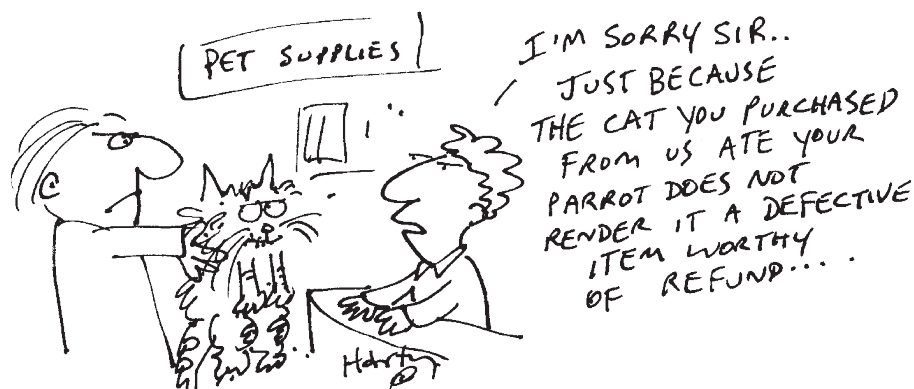 PET SUPPLIES
I'M SORRY SIR..
JUST BECAUSE
THE CAT YOU PURCHASED
FROM US ATE YOUR
PARROT DOES NOT
RENDER IT A DEFECTIVE
ITEM WORTHY
OF REFUND....